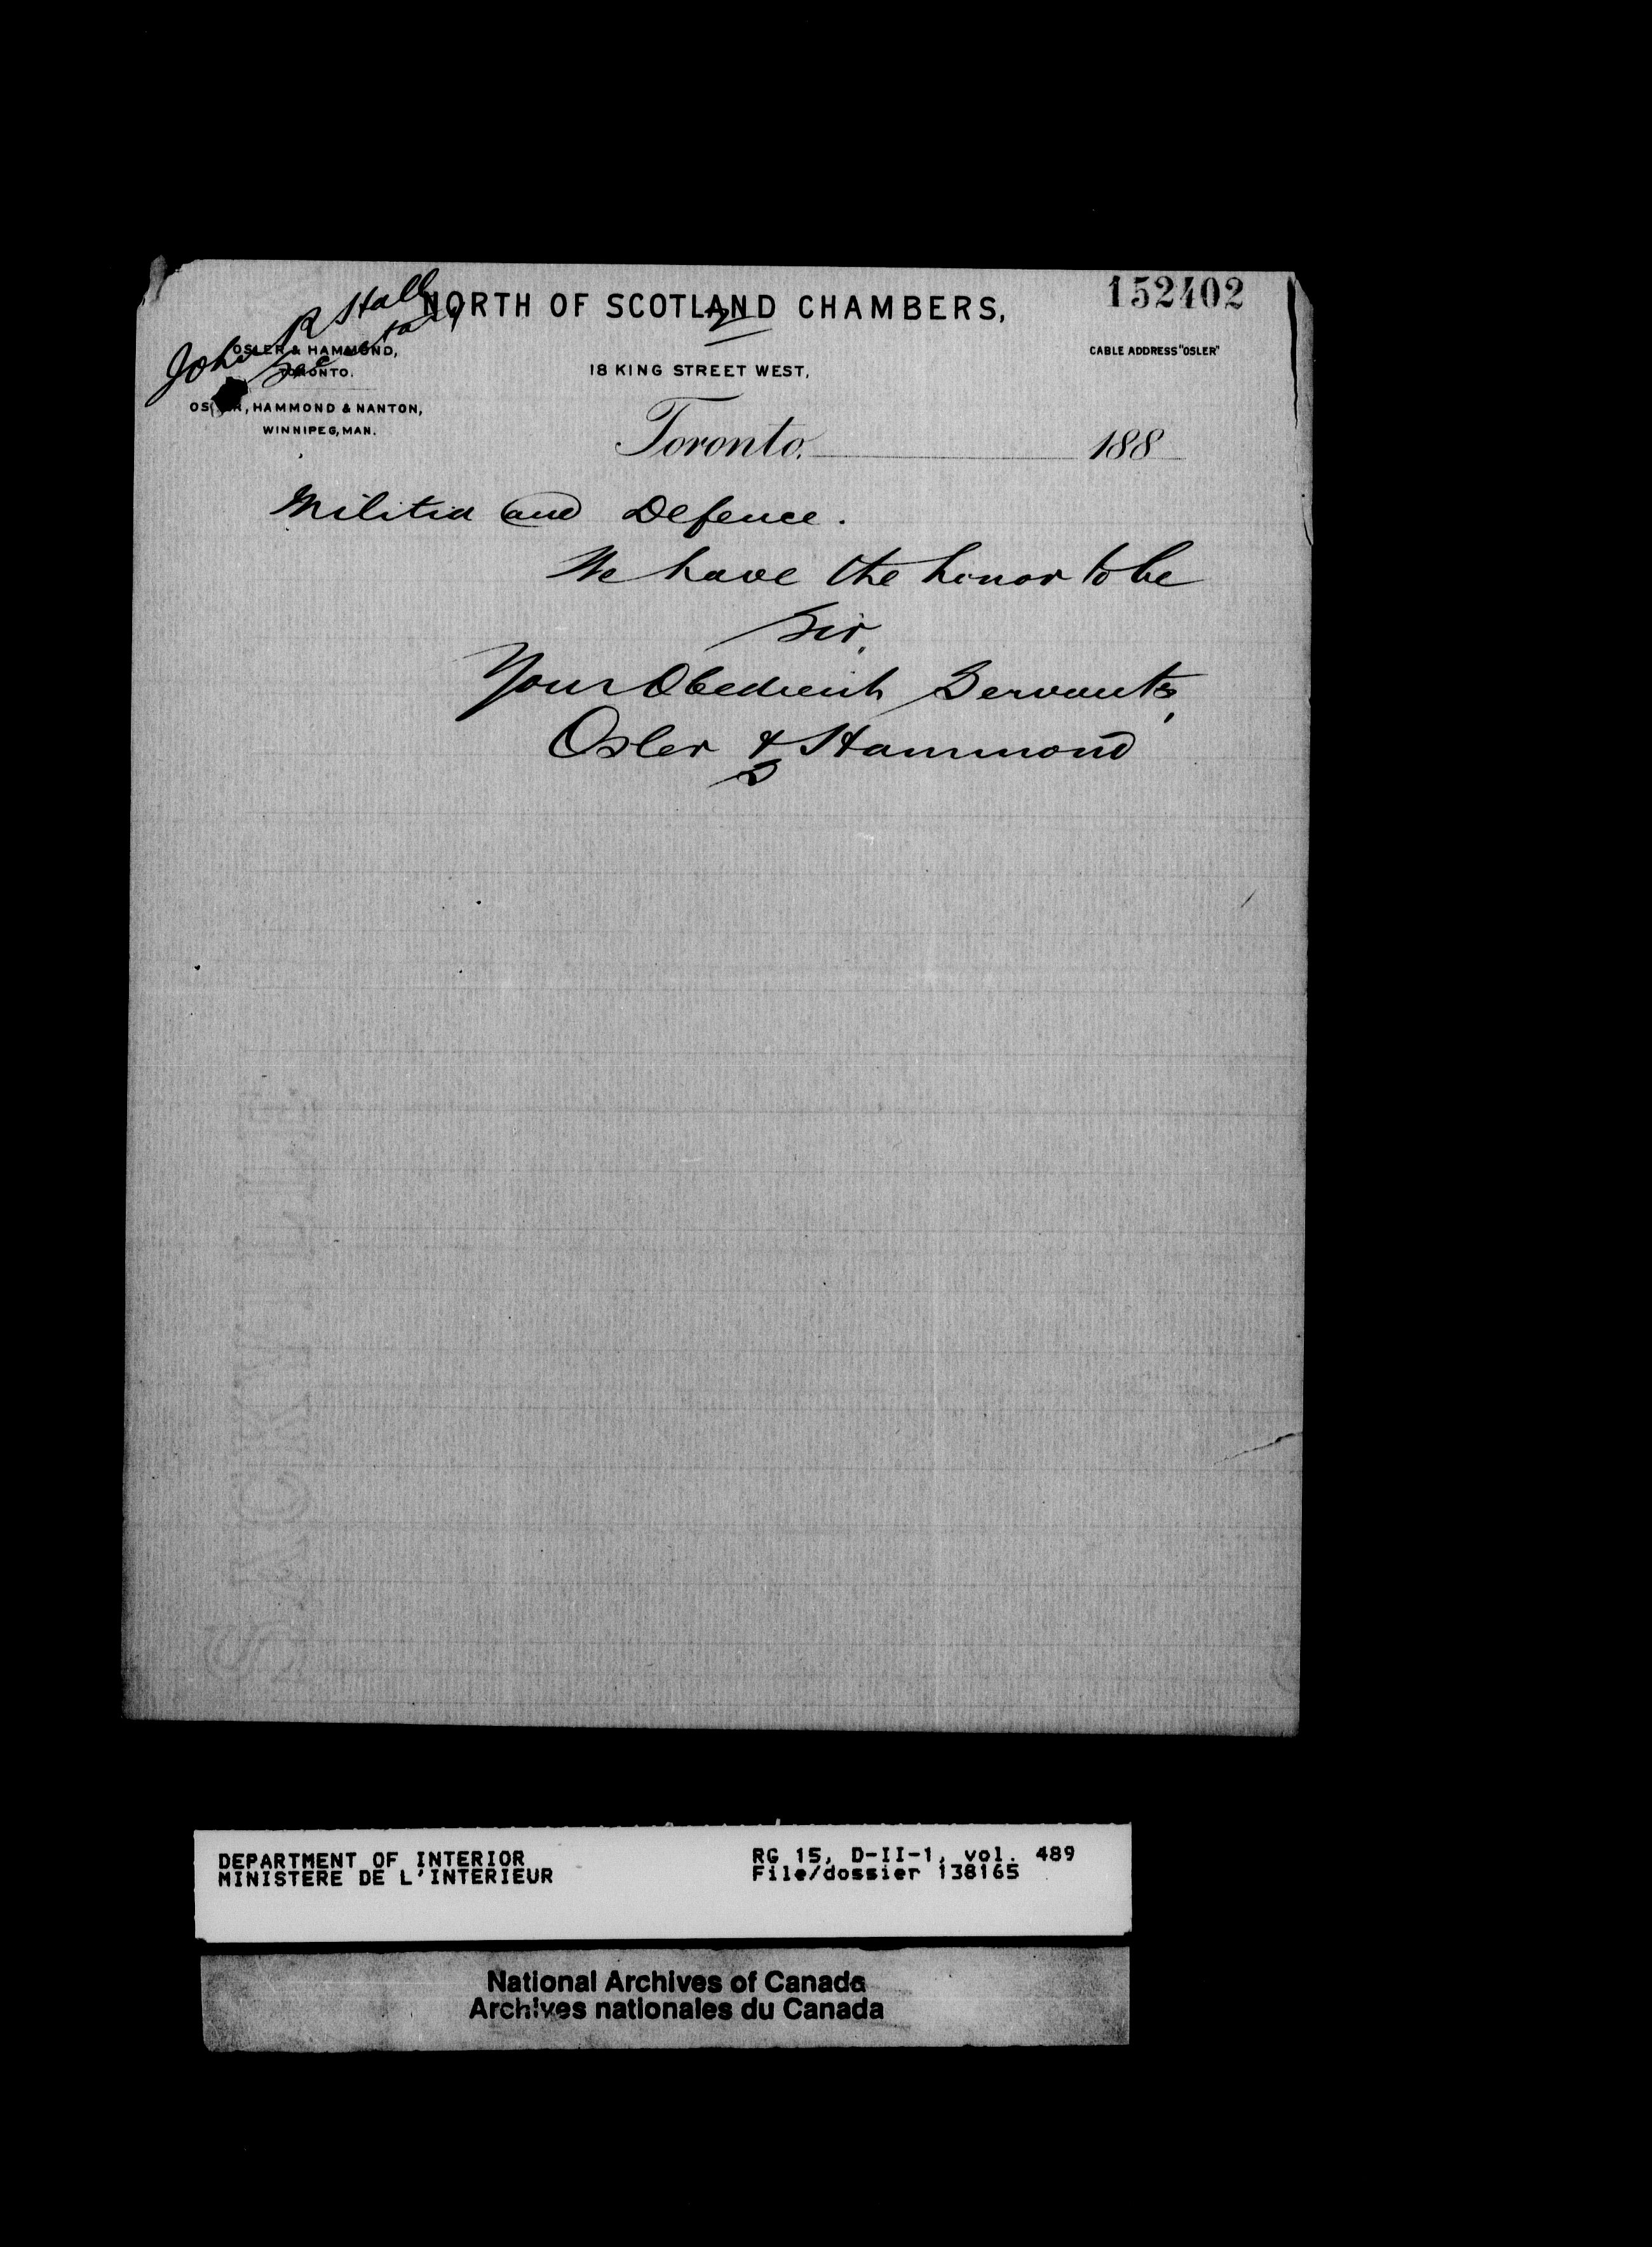 152402
John R Hall
Secretary
NORTH OF SCOTLAND CHAMBERS,
2
OSLER & HAMMOND,
TORONTO.
CABLE ADDRESS "OSLER"
18 KING STREET WEST,
OSLER, HAMMOND & NANTON,
WINNIPEG, MAN.
Toronto, 188
Militia and Defence.
We have the honor to be
Sir,
Your Obedient Servants,
Osler & Hammond
SACKVILLE
DEPARTMENT OF INTERIOR
MINISTERE DE L'INTERIEUR
RG 15, D-II-1, vol. 489
File/dossier 138165
National Archives of Canada
Archives nationales du Canada